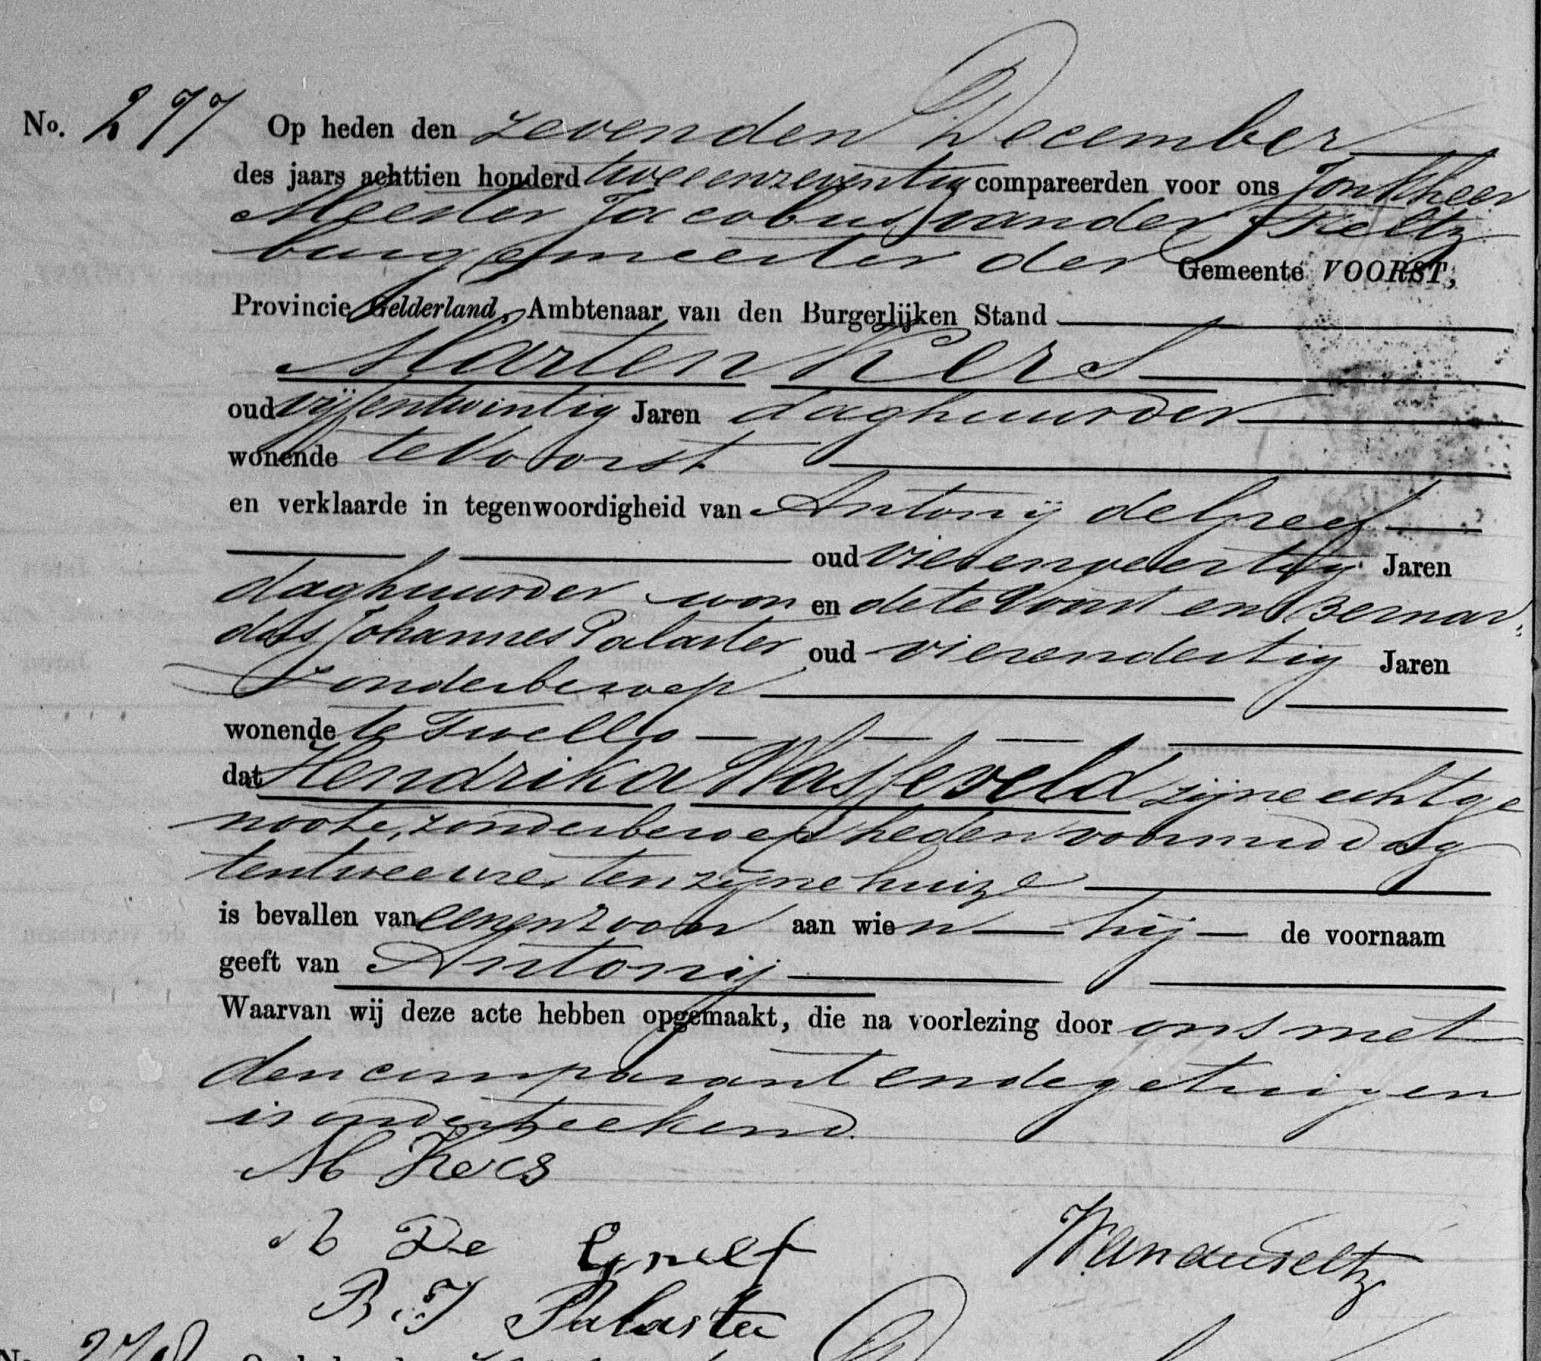 No. 277 Op heden den zevenden December
des jaars achttien honderd tweeenzeventig compareerden voor ons Jonkheer
Meester Jacobus van der Feltz
burgemeester der Gemeente VOORST,
Provincie Gelderland, Ambtenaar van den Burgerlijken Stand
Marten Kers
oud vijfentwintig Jaren daghuurder
wonende te Voorst
en verklaarde in tegenwoordigheid van Antonij de Greef
oud vierenveertig Jaren
daghuurder won en de te Voorst en Bernar-
dus Johannes Palaster oud vierendertig Jaren
zonder beroep
wonende te Twello
dat Hendrika Wasseveld zijne echtge
noote, zonder beroep heden voormiddag
ten twee ure, ten zijne huize
is bevallen van eenen zoon aan wien hij de voornaam
geeft van Antonij
Waarvan wij deze acte hebben opgemaakt, die na voorlezing door ons met
den comparant en de getuigen
is onderteekend.
M Kers
A De Greef
B. J Palaster
No. 278